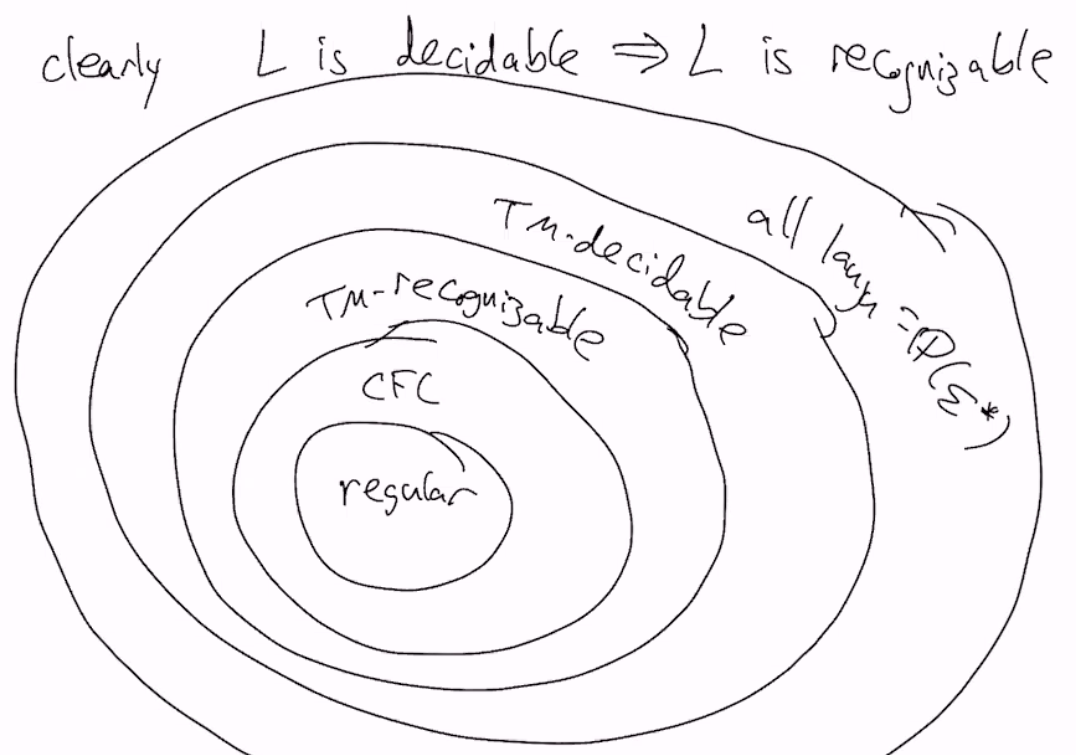 clearly L is decidable ⇒ L is recognizable
all lang = P(Σ*)
TM-decidable
TM-recognizable
CFC
regular